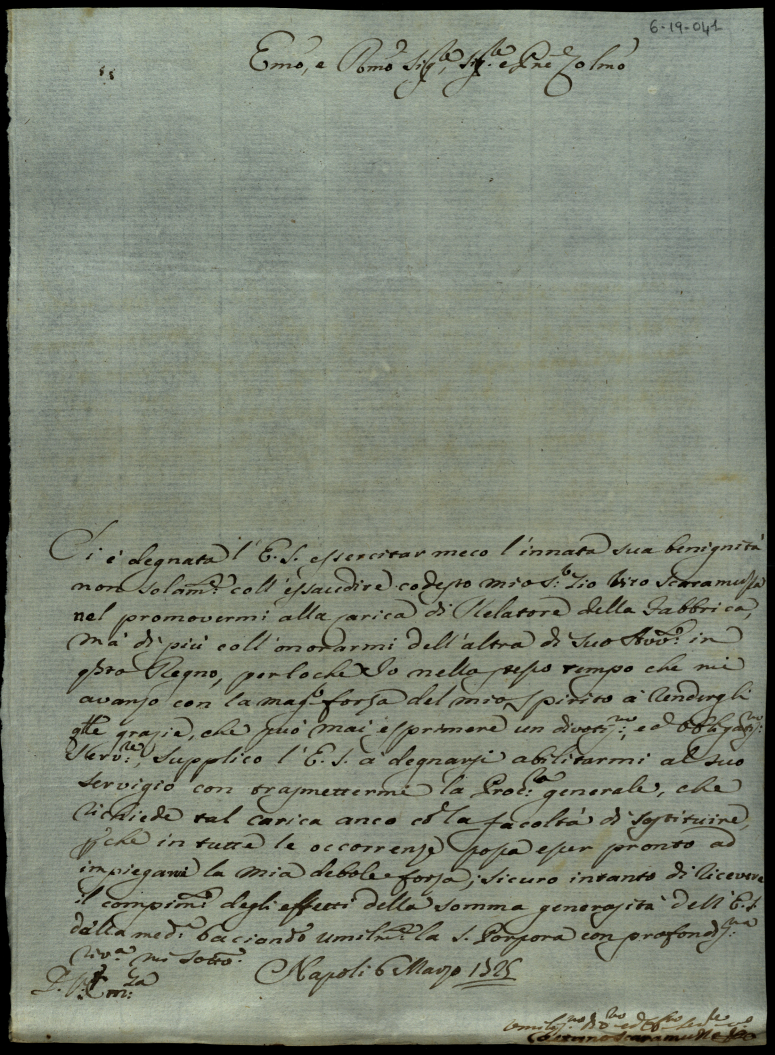 6-19-041
Emo, e Rmo Sigre, Sigre e Pne Colmo
Si è degnata l'E. S. essercitar meco l'innata sua benignità
non solamte coll'essaudire codesto mio Sr Zio Vito Scaramuzza
nel promovermi alla carica di Relatore della Fabbrica,
mà di più coll'onorarmi dell'altra di suo Avvo: in
qsto Regno, perloche Io nello stesso tempo che mi
avanzo con la magr forza del mio spirito à renderli
qlle grazie, che può mai esprimere un divotismo, ed obbligatismo
Servre, supplico l'E. S. à degnarsi abilitarmi al suo
servigio con trasmettermi la Procra generale, che
richiede tal carica anco co la facoltà di sostituire,
pche in tutte le occorrenze possa esser pronto ad
impiegare la mia debole forza; sicuro intanto di ricevere
il compimto degli effetti della somma generosità dell'E. S.
dalla medma baciando umilmte la S. Porpora con profondma
riva mi sotto:
Napoli 6 Marzo 1725